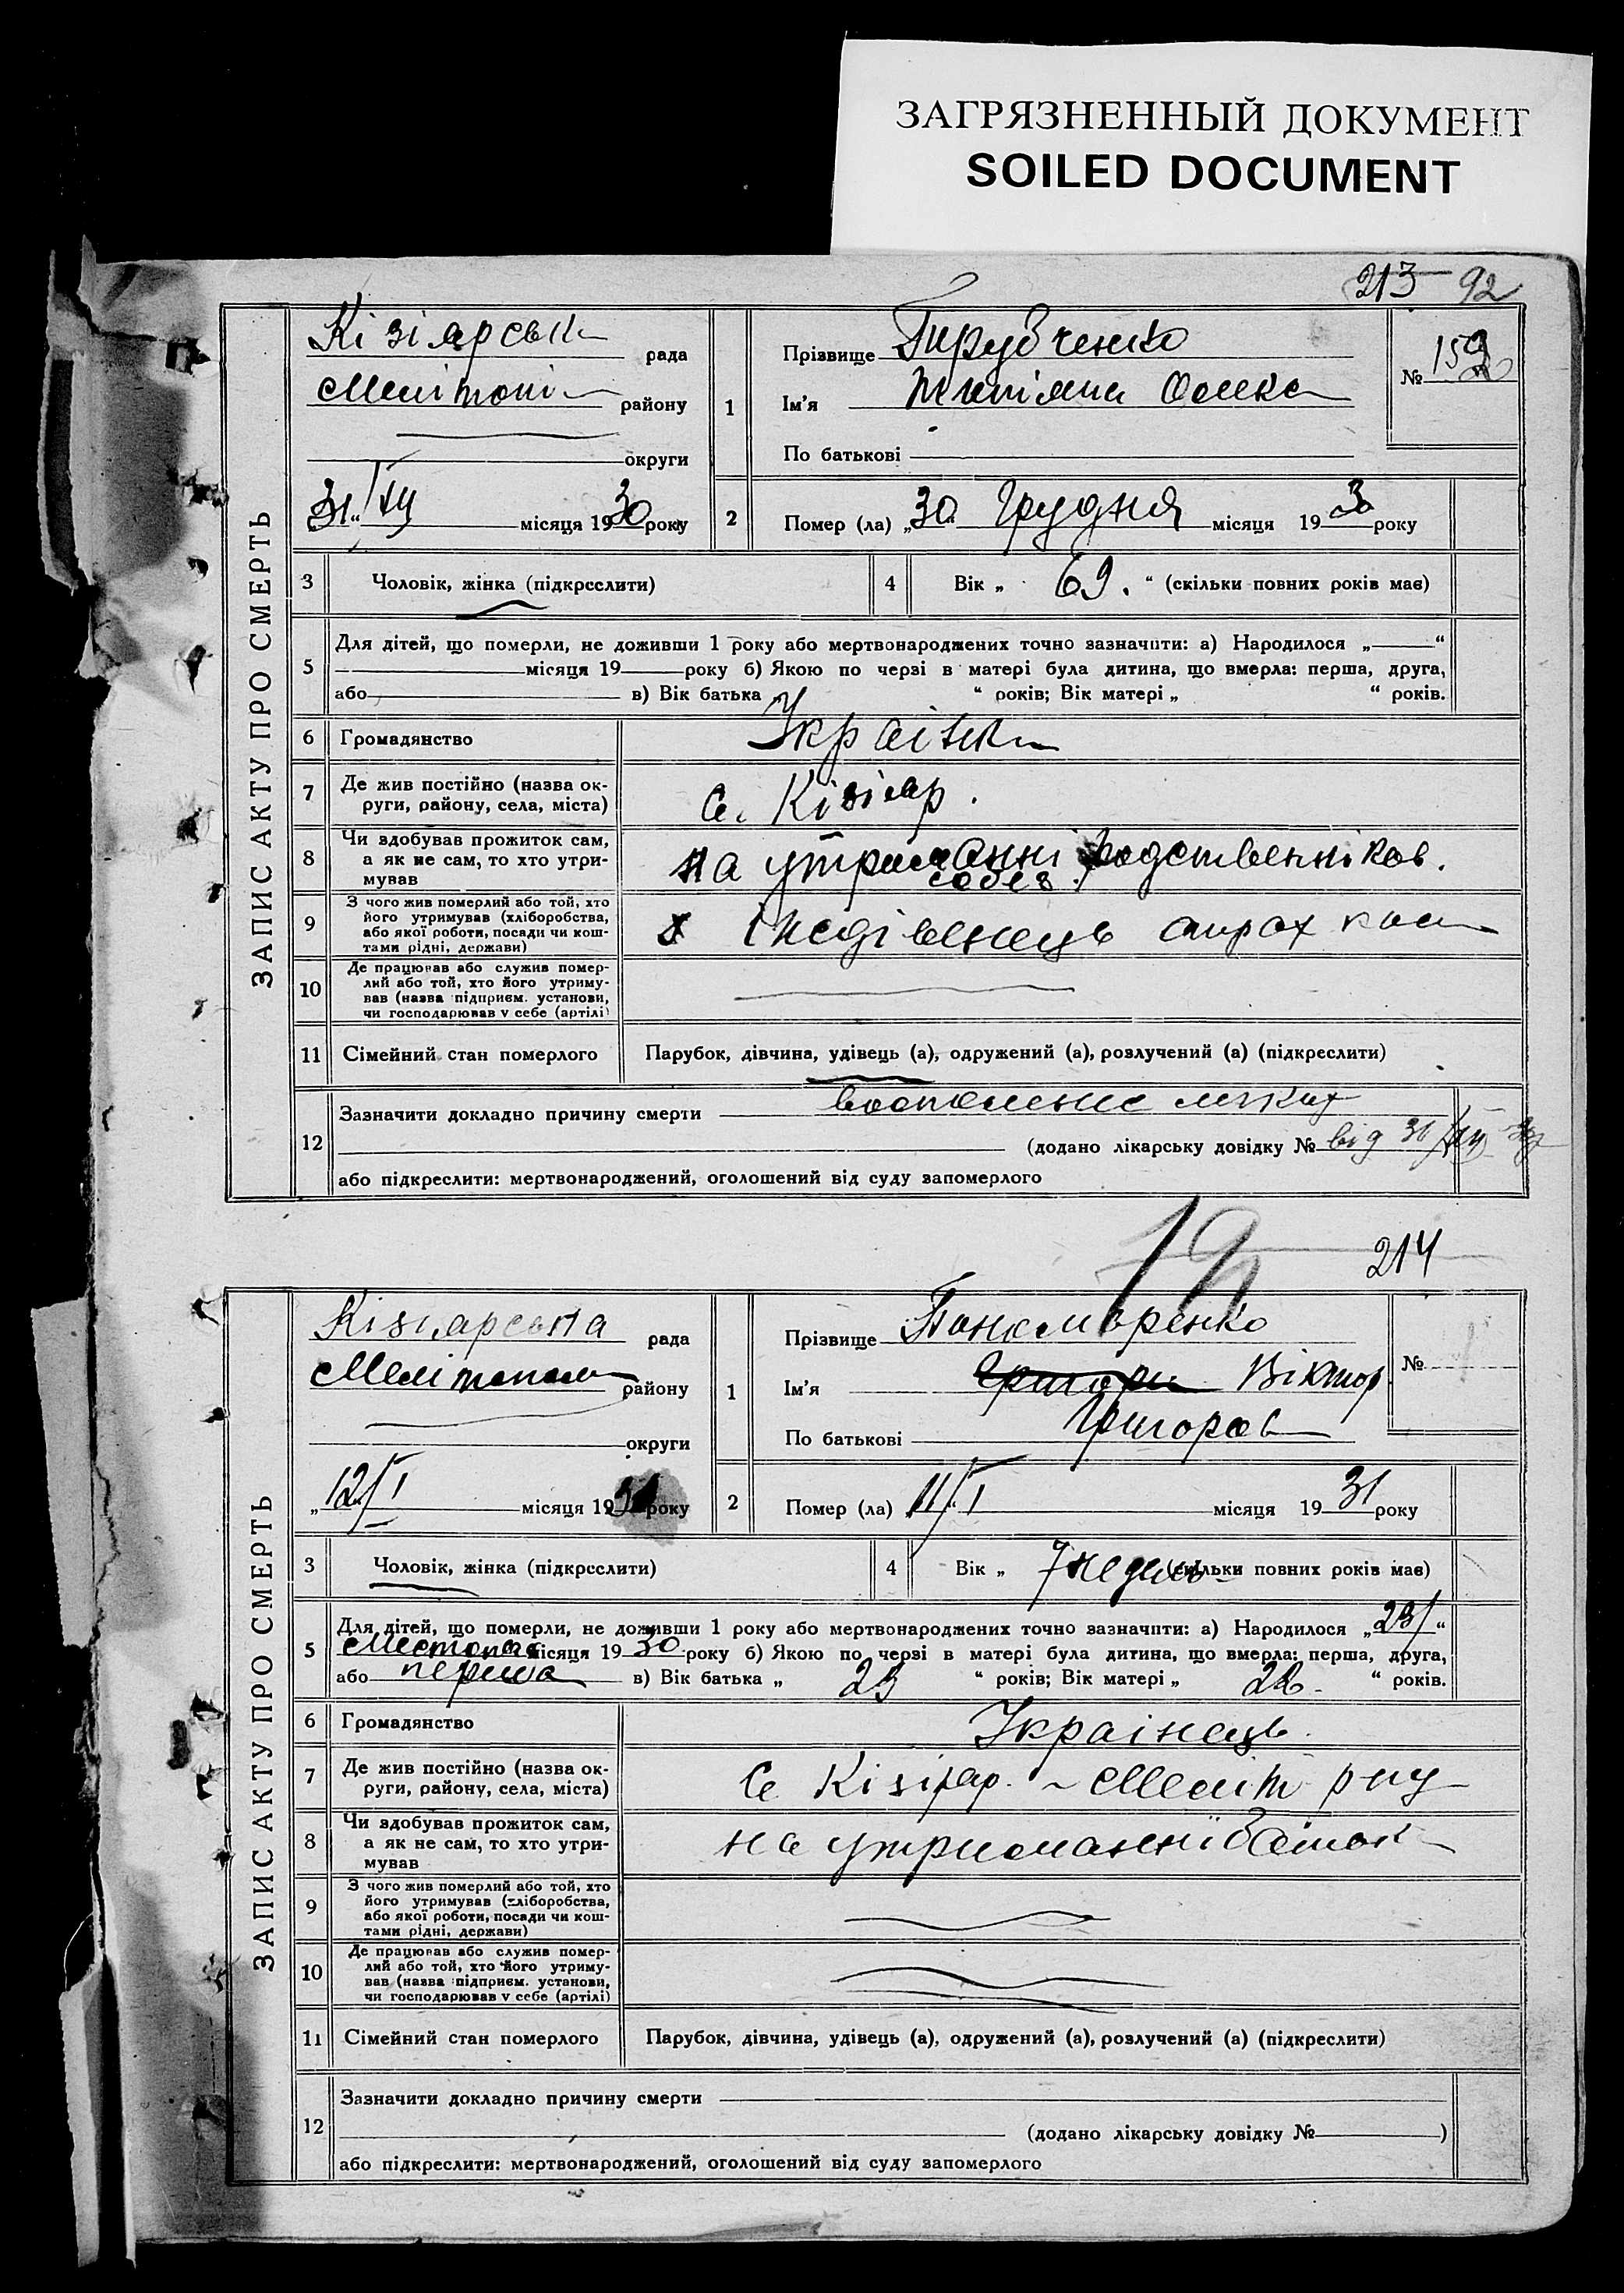 ЗАГРЯЗНЕННЫЙ ДОКУМЕНТ
SOILED DOCUMENT
213 92
ЗАПИС АКТУ ПРО СМЕРТЬ
Кізіярськ рада
Мелітопі району
округи
31/XII місяця 1930 року
1
Прізвище
Ім'я
По батькові
№ 159
2 Помер (ла) „30“ Грудня місяця 1930 року
3 Чоловік, жінка (підкреслити)
4 Вік „ 69. “ (скільки повних років має)
5 Для дітей, що померли, не доживши 1 року або мертвонароджених точно зазначити: а) Народилося „ “
місяця 19 року б) Якою по черзі в матері була дитина, що вмерла: перша, друга,
або в) Вік батька “ років; Вік матері „ “ років.
6 Громадянство Українка
7 Де жив постійно (назва ок-
руги, району, села, міста)
с. Кізіяр.
8 Чи здобував прожиток сам,
а як не сам, то хто утри-
мував
на утриманні родственніков.
9 З чого жив померлий або той, хто
його утримував (хліборобства,
або якої роботи, посади чи кош-
тами рідні, держави)
10 Де працював або служив помер-
лий або той, хто його утриму-
вав (назва підприєм. установи,
чи господарював у себе (артілі)
11 Сімейний стан померлого Парубок, дівчина, удівець (а), одружений (а), розлучений (а) (підкреслити)
12 Зазначити докладно причину смерти
(додано лікарську довідку № від 31/XII 30
або підкреслити: мертвонароджений, оголошений від суду запомерлого
19
214
ЗАПИС АКТУ ПРО СМЕРТЬ
Кізіярська рада
Мелітополь району
округи
„12/I місяця 1931 року
1
Прізвище Пономаренко
Ім'я Віктор
По батькові Григоров
№
2 Помер (ла) „11/I місяця 1931 року
3 Чоловік, жінка (підкреслити)
4 Вік „ 7 недель (скільки повних років має)
5 Для дітей, що померли, не доживши 1 року або мертвонароджених точно зазначити: а) Народилося „23/“
місяця 1930 року б) Якою по черзі в матері була дитина, що вмерла: перша, друга,
або перша в) Вік батька „ 23 “ років; Вік матері „ “ років.
6 Громадянство Українець.
7 Де жив постійно (назва ок-
руги, району, села, міста)
с Кізіяр. Меліт р-ну
8 Чи здобував прожиток сам,
а як не сам, то хто утри-
мував
на утриманні батьк
9 З чого жив померлий або той, хто
його утримував (хліборобства,
або якої роботи, посади чи кош-
тами рідні, держави)
10 Де працював або служив помер-
лий або той, хто його утриму-
вав (назва підприєм. установи,
чи господарював у себе (артілі)
11 Сімейний стан померлого Парубок, дівчина, удівець (а), одружений (а), розлучений (а) (підкреслити)
12 Зазначити докладно причину смерти
(додано лікарську довідку № )
або підкреслити: мертвонароджений, оголошений від суду запомерлого